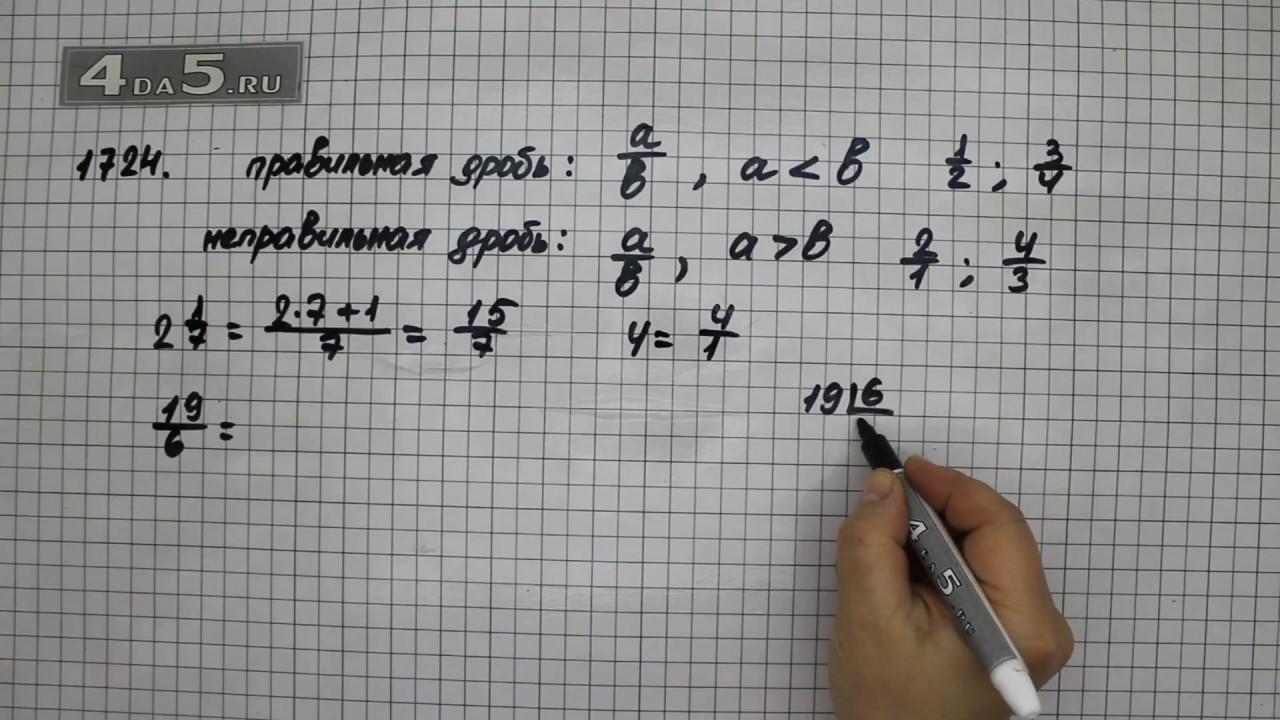 4DA5.RU
1724. правильная дробь: a/b, a < b 1/2; 3/4
неправильная дробь: a/b, a > b 2/1; 4/3
2 1/7 = (2·7+1)/7 = 15/7 4 = 4/1
19/6 =
19 | 6
4DA5.RU